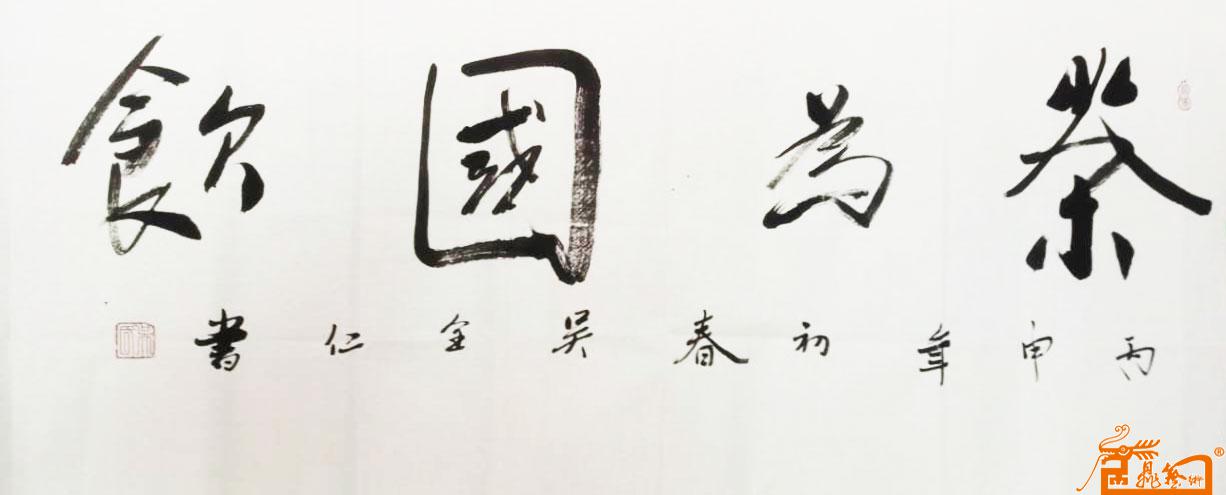 茶為國飲
丙申年初春吴全仁書